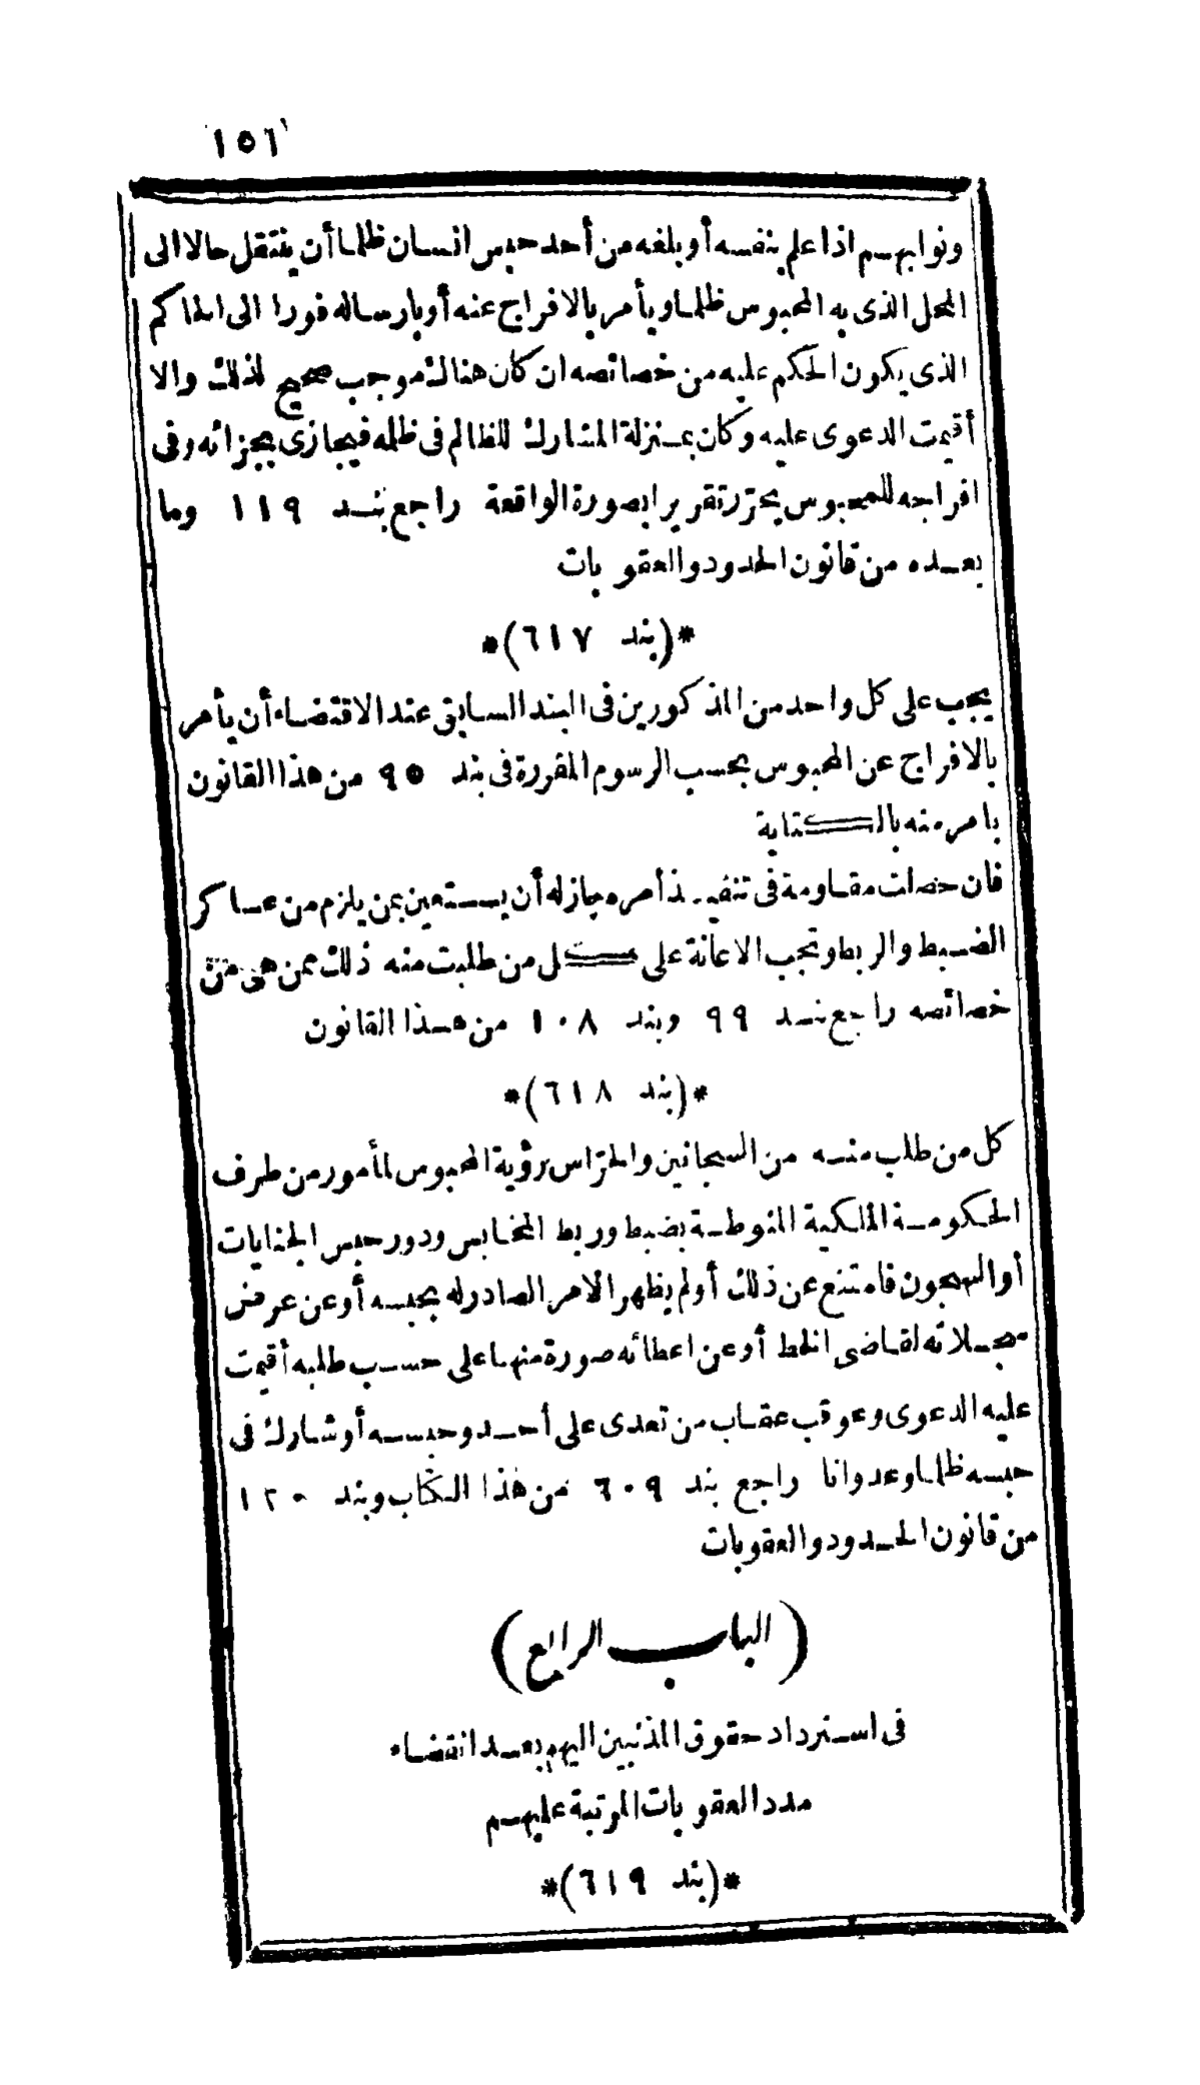 ١٥٦
ونوابهم اذا علم بنفسه أو بلغه من أحد حبس انسان ظلما أن ينتقل حالا الى
المحل الذى به المحبوس ظلما ويأمر بالافراج عنه أو بارساله فورا الى الحاكم
الذى يكون الحكم عليه من خصائصه ان كان هنالك موجب صحيح لذلك والا
أقيمت الدعوى عليه وكان بمنزلة المشارك للظالم فى ظلمه فيجازى بجزائه وفى
افراجه للمحبوس يحرّر تقريرا بصورة الواقعة راجع بند ١١٩ وما
بعده من قانون الحدود والعقوبات
*(بند ٦١٧)*
يجب على كل واحد من المذكورين فى البند السابق عند الاقتضاء أن يأمر
بالافراج عن المحبوس بحسب الرسوم المقررة فى بند ٩٥ من هذا القانون
بامر منه بالكتابة
فان حصلت مقاومة فى تنفيذ أمره جاز له أن يستعين بمن يلزم من عساكر
الضبط والربط وتجب الاعانة على كل من طلبت منه ذلك ممن هى من
خصائصه راجع بند ٩٩ وبند ١٠٨ من هذا القانون
*(بند ٦١٨)*
كل من طلب منه من السجانين والحرّاس رؤية المحبوس لمأمور من طرف
الحكومة الملكية المنوطة بضبط وربط المخابس ودور حبس الجنايات
أو السجون فامتنع عن ذلك أولم يظهر الامر الصادر له بحبسه أو عن عرض
سجلاته لقاضى الخط أو عن اعطائه صورة منها على حسب طلبه أقيمت
عليه الدعوى وعوقب عقاب من تعدى على أحد وحبسه أو شارك فى
حبسه ظلما وعدوانا راجع بند ٦٠٩ من هذا الكتاب وبند ١٢٠
من قانون الحدود والعقوبات
(الباب الرابع)
فى استرداد حقوق المذنبين اليهم بعد انقضاء
مدد العقوبات المرتبة عليهم
*(بند ٦١٩)*